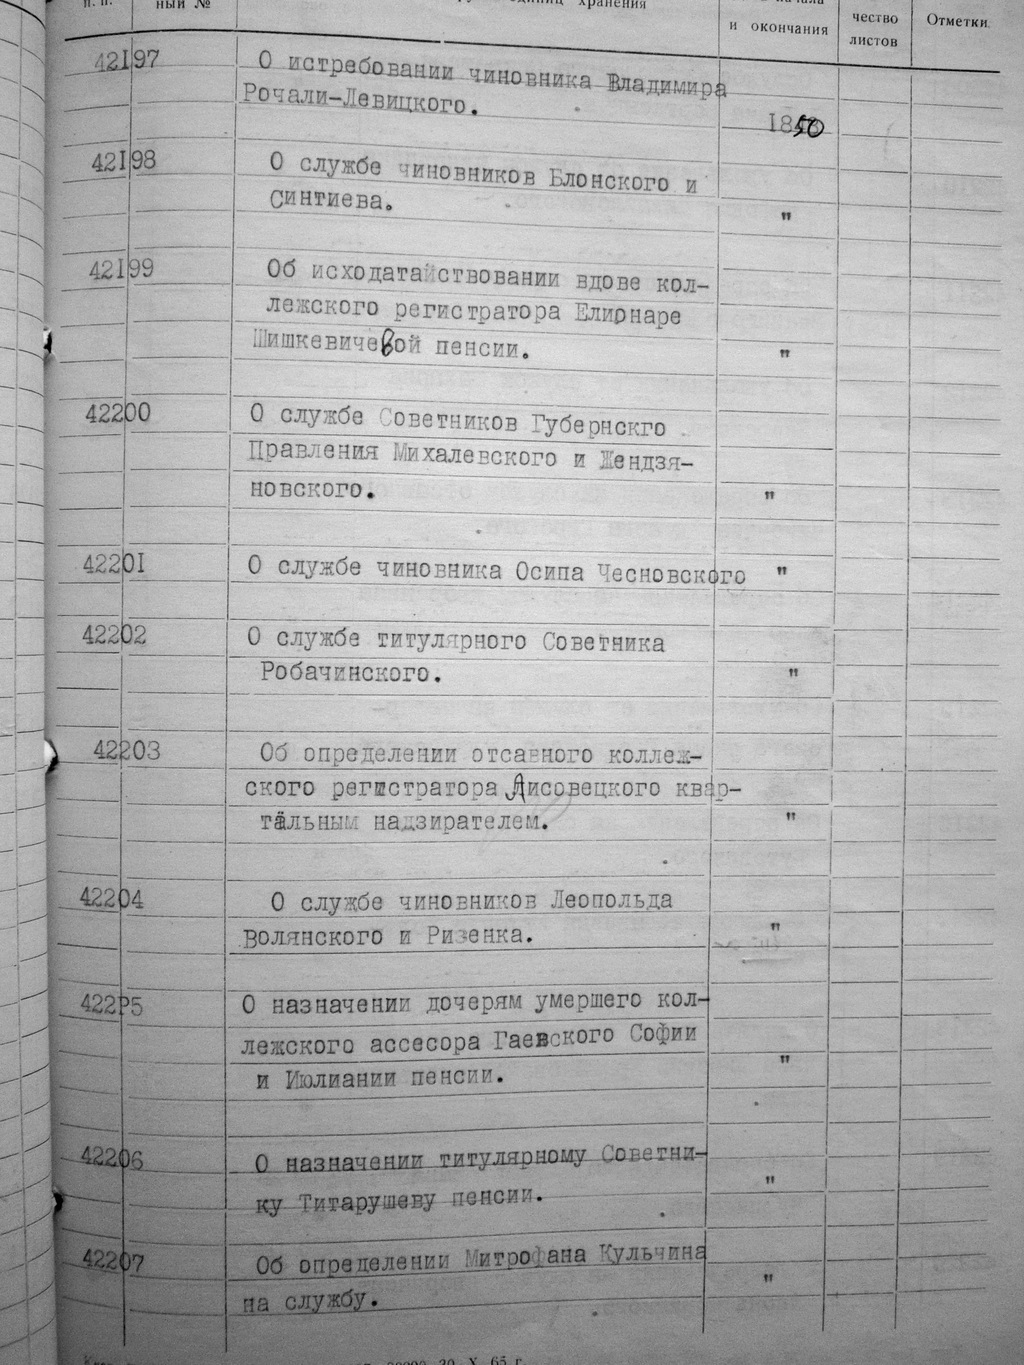 п. п.
ный №
единиц хранения
и окончания
чество
листов
Отметки.
42I97
О истребовании чиновника Владимира
Рочали-Левицкого.
1850
42I98
О службе чиновников Блонского и
Синтиева.
"
42I99
Об исходатайствовании вдове кол-
лежского регистратора Елионаре
Шишкевичевой пенсии.
"
42200
О службе Советников Губернскго
Правления Михалевского и Жендзя-
новского.
"
4220I
О службе чиновника Осипа Чесновского "
42202
О службе титулярного Советника
Робачинского.
"
42203
Об определении отсавного коллеж-
ского регистратора Лисовецкого квар-
тальным надзирателем.
"
42204
О службе чиновников Леопольда
Волянского и Ризенка.
"
422Р5
О назначении дочерям умершего кол-
лежского ассесора Гаевского Софии
и Июлиании пенсии.
"
42206
О назначении титулярному Советни-
ку Титарушеву пенсии.
"
42207
Об определении Митрофана Кульчина
на службу.
"
X 65 г.